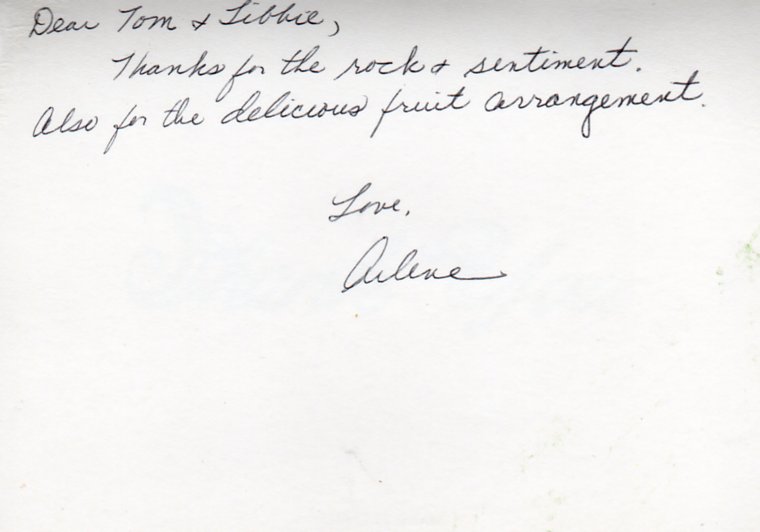 Dear Tom & Libbie,
Thanks for the rock & sentiment.
Also for the delicious fruit arrangement.
Love,
Arlene